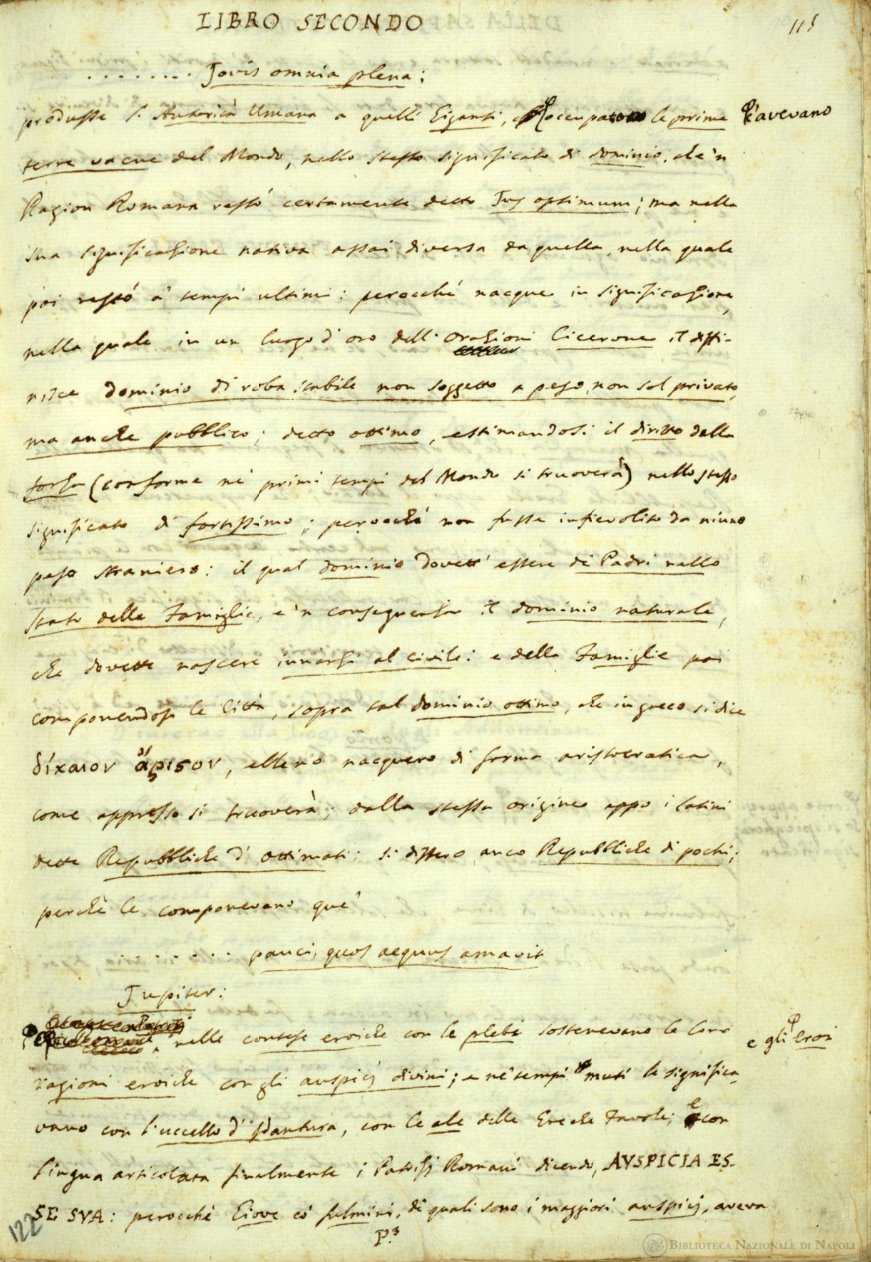 LIBRO SECONDO
115
. . . . . . . . Jovis omnia plena;
produsse l'Autorità Umana a quelli Giganti, ch' occupato le prime ch'avevano
terre vacue del Mondo, nello stesso significato di dominio, che 'n
Ragion Romana restò certamente detto Jus optimum; ma nella
sua significazione nativa assai diversa da quella, nella quale
poi restò a' tempi ultimi: perocchè nacque in significazione,
nella quale in un luogo d'oro dell' Orazioni Cicerone il diffi-
nisce dominio di roba stabile non soggetto a peso, non sol privato,
ma anche pubblico; detto ottimo, estimandosi il diritto dalla
forza (conforme ne' primi tempi del Mondo si truoverà) nello stesso
significato di fortissimo; perocchè non fusse infievolito da niuno
peso straniero: il qual dominio dovett' essere de' Padri nello
Stato delle Famiglie, e 'n conseguenza il dominio naturale,
che dovette nascere innanzi al civile: e delle Famiglie poi
componendosi le Città, sopra tal dominio ottimo, che in greco si dice
δίκαιον ἄριστον, elleno nacquero di forma aristocratica,
come appresso si truoverà; dalla stessa origine appo i Latini
dette Repubbliche d' Ottimati; si dissero anco Repubbliche di pochi;
perchè le componevano que'
. . . . . . . . pauci, quos aequus amavit
Jupiter:
nelle contese eroiche con le plebi sostenevano le loro e gli Eroi
ragioni eroiche con gli auspicj divini; e ne' tempi muti le significa-
vano con l'uccello d'Idantura, con le ale delle Greche Favole; e con
lingua articolata finalmente i Patrizj Romani dicendo, AUSPICIA ES-
SE SUA: perocchè Giove co' fulmini, de' quali sono i maggiori auspicj, aveva
P.3
122
BIBLIOTECA NAZIONALE DI NAPOLI